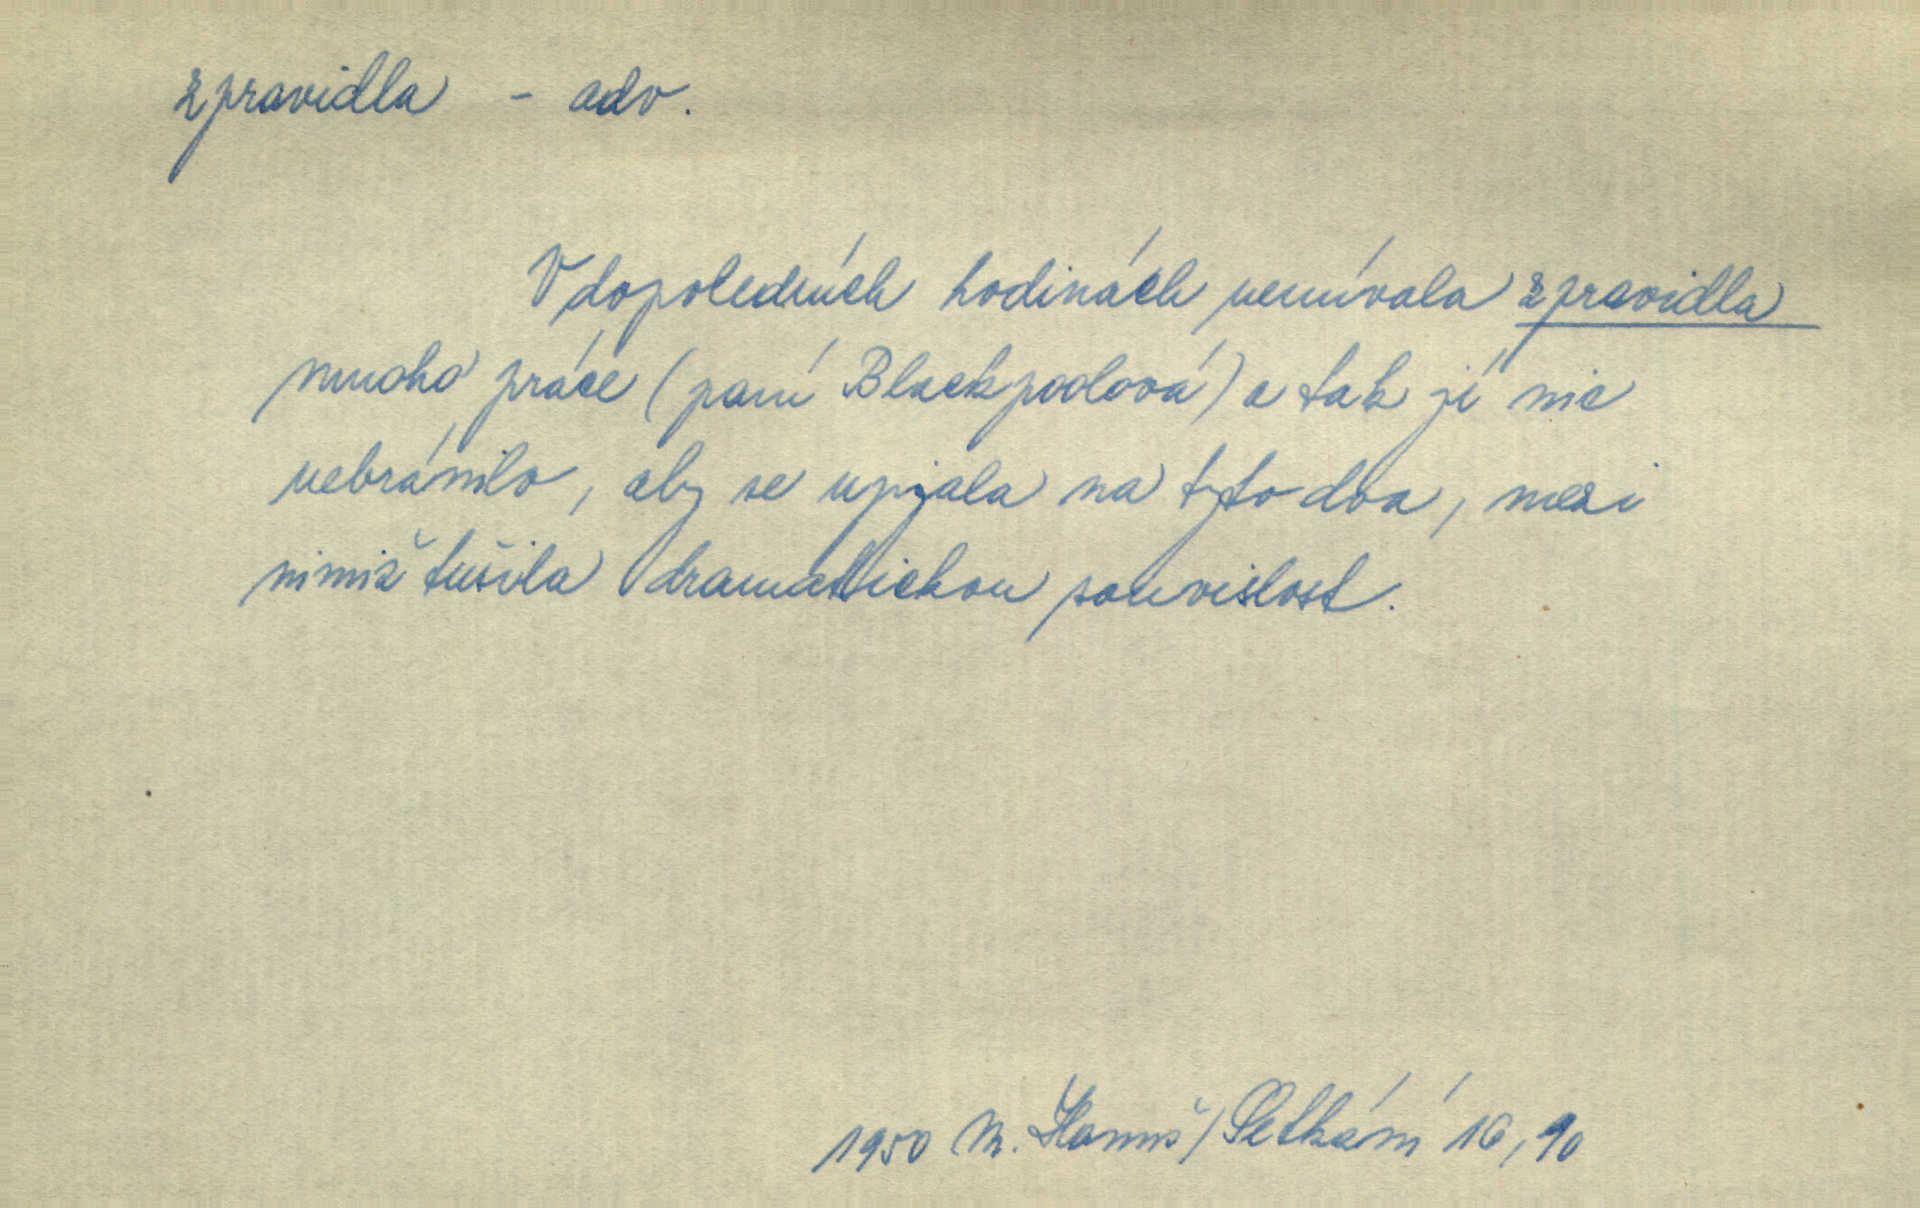 zpravidla - adv.
V dopoledních hodinách nemívala zpravidla
mnoho práce (paní Blackpoolová) a tak jí nic
nebránilo, aby se upjala na tyto dva, mezi
nimiž tušila dramatickou souvislost.
1950 M. Hanuš/Setkání 10,90